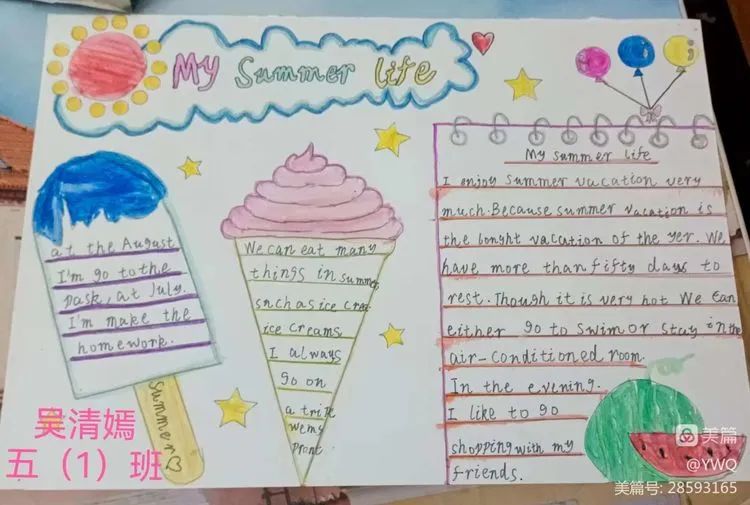 My Summer life
at the August
I'm go to the
pask, at July.
I'm make the
homework.
summer
We can eat many
things in summer
snch as ice crea
ice creams
I always
go on
a trip
wems
My summer life
I enjoy summer vacation very
much. Because summer vacation is
the longht vacation of the yer. We
have more than fifty days to
rest. Though it is very hot We can
either go to swim or stay in the
air-conditioned room.
In the evening.
I like to go
shopping with my
friends.
吴清嫣
五（1）班
美篇
@YWQ
美篇号: 28593165